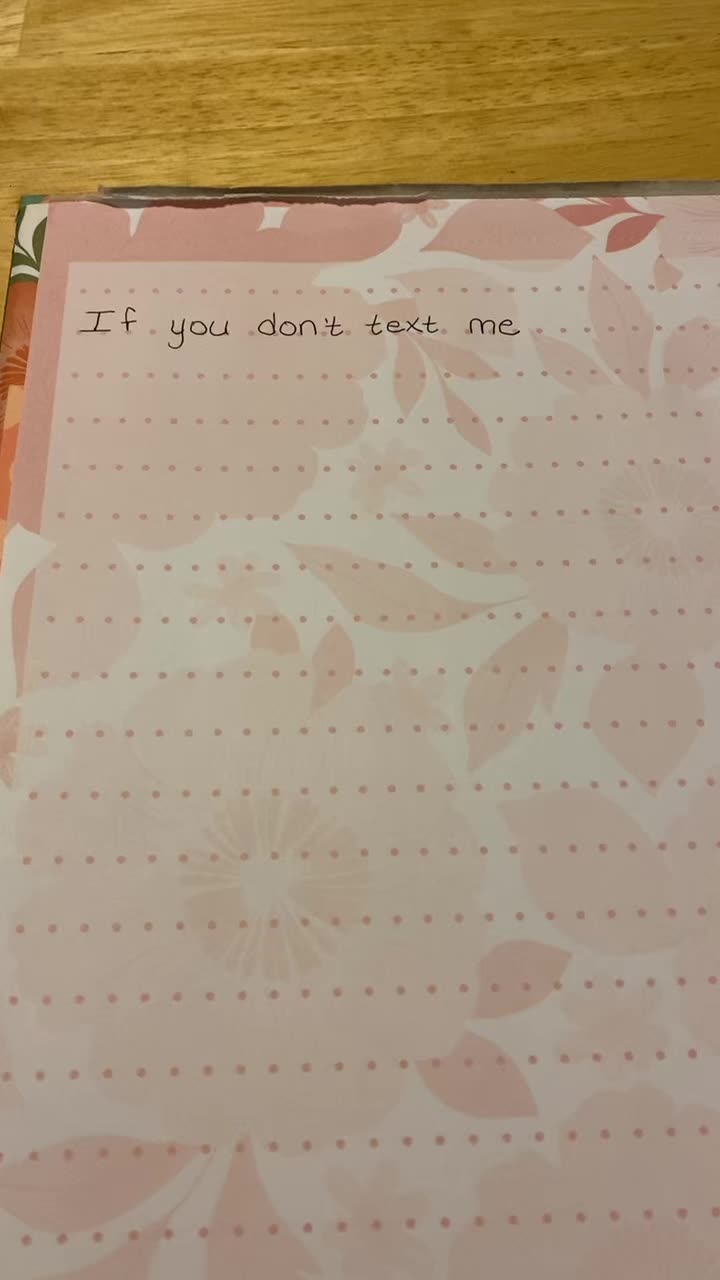 If you don't text me